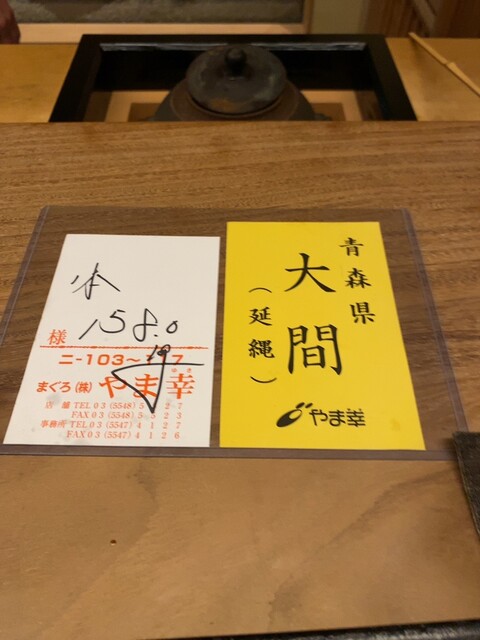 本
158.0
19
様
ニ-103~
まぐろ(株)やま幸
ゆき
店 舗 TEL 03(5548)
FAX 03(5548)
事務所 TEL 03(5547)4127
FAX 03(5547)4126
青森県
大間
(延縄)
やま幸